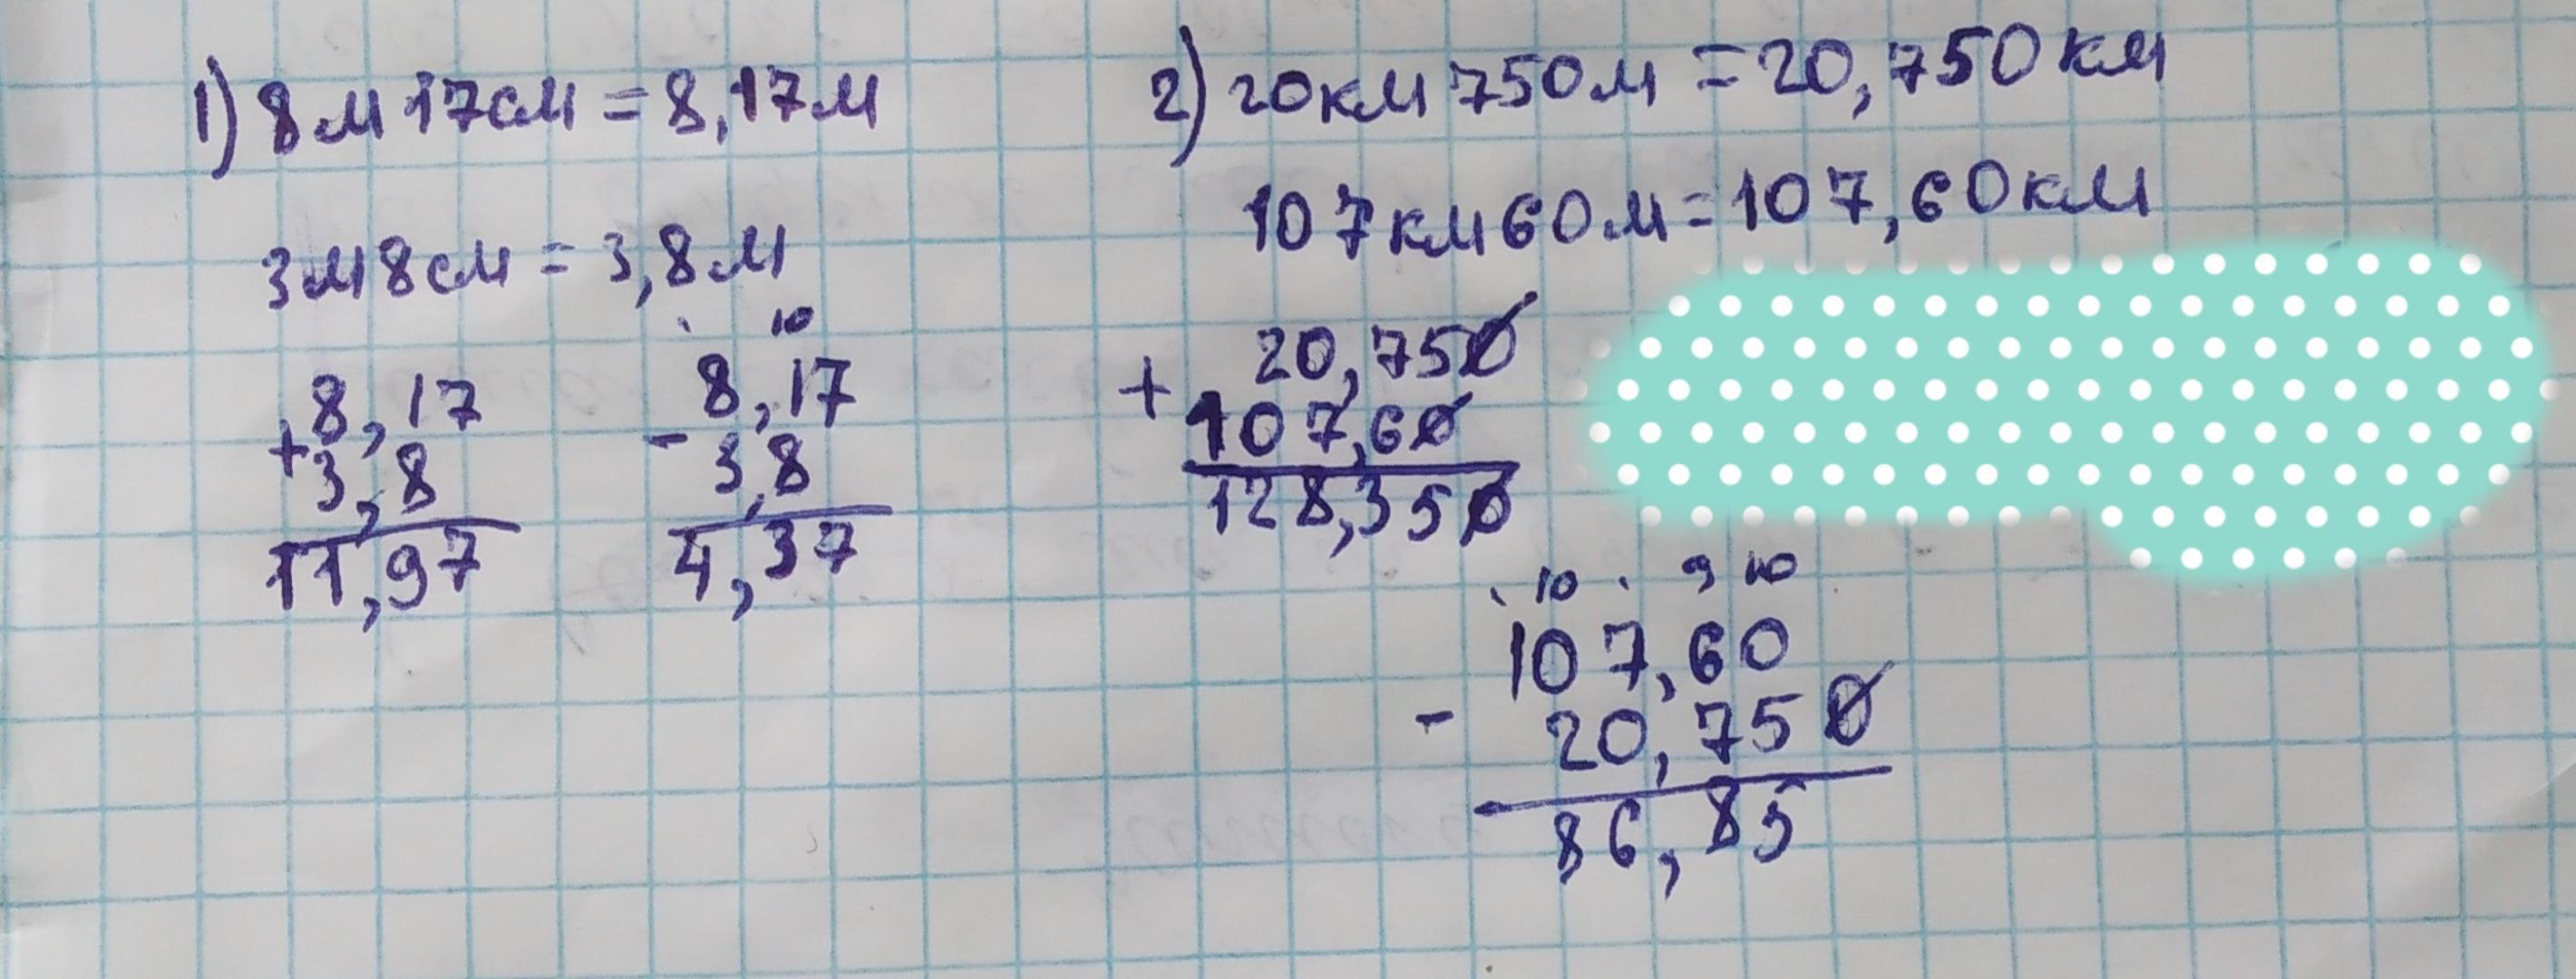 1) 8м 17см = 8,17м
3м 8см = 3,8м
10
+ 8,17
3,8
11,97
- 8,17
3,8
4,37
2) 20км 750м = 20,750км
107км 60м = 107,60км
+ 20,750
107,60
128,350
10 9 10
107,60
- 20,750
86,85